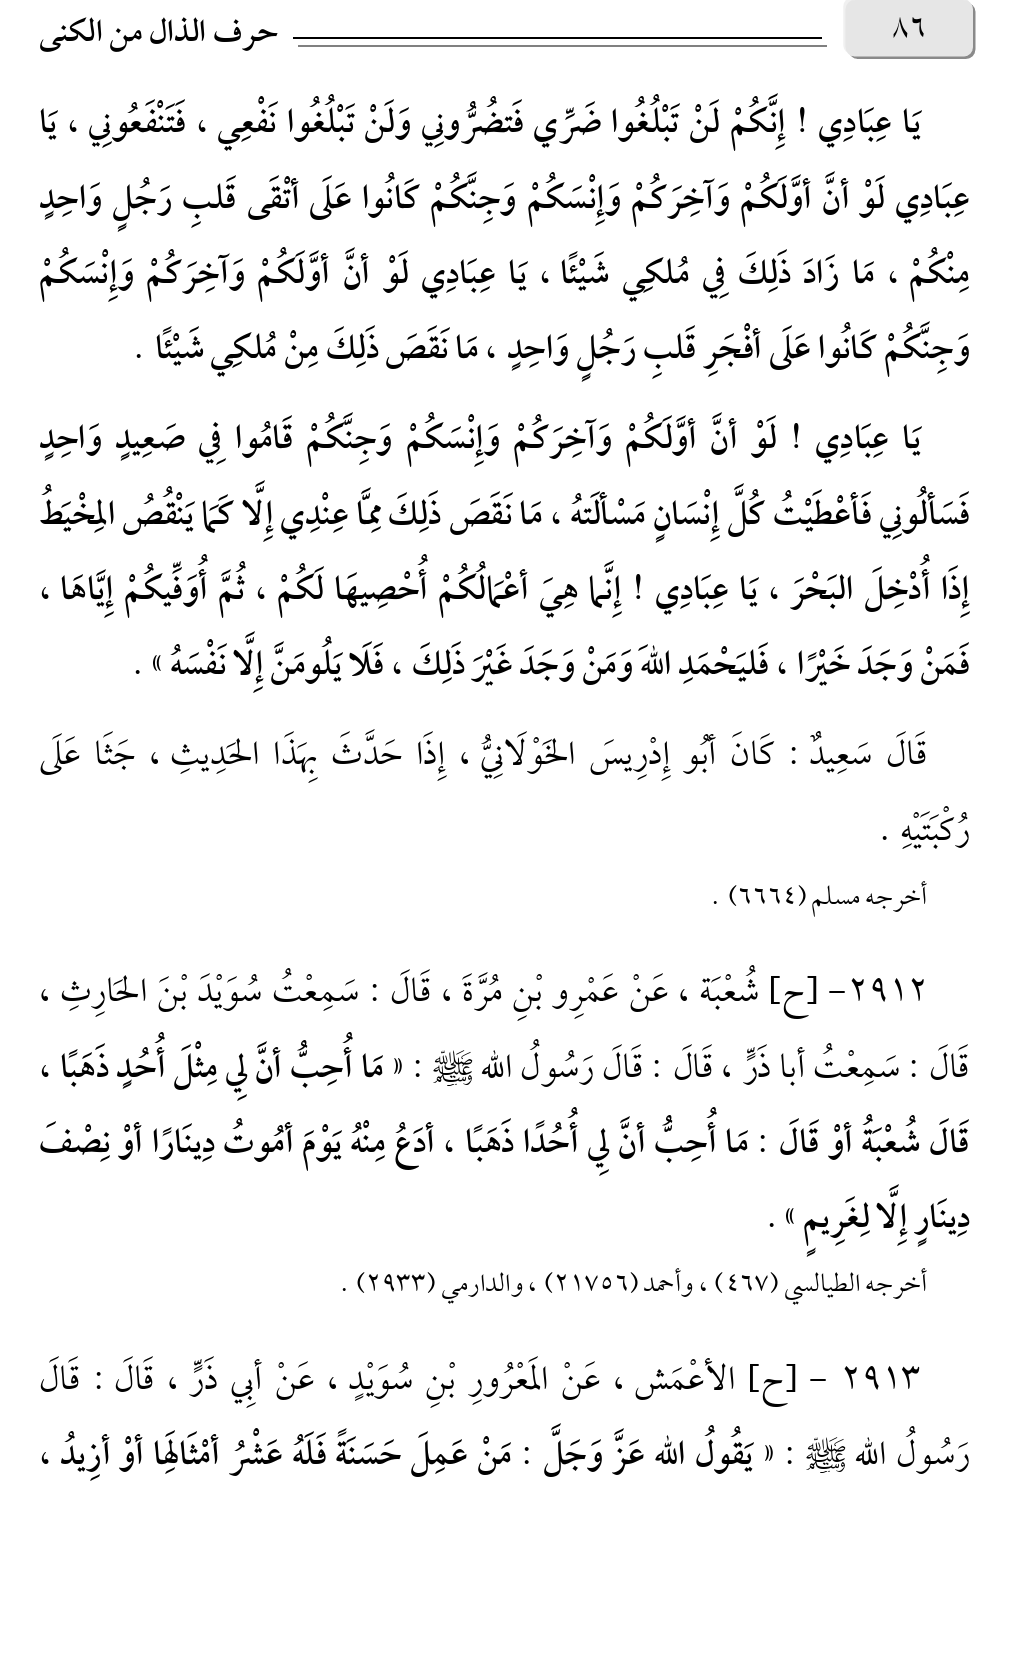 ٨٦ حرف الذال من الكنى
يَا عِبَادِي ! إِنَّكُمْ لَنْ تَبْلُغُوا ضَرِّي فَتضُرُّونِي وَلَنْ تَبْلُغُوا نَفْعِي ، فَتَنْفَعُونِي ، يَا
عِبَادِي لَوْ أنَّ أوَّلَكُمْ وَآخِرَكُمْ وَإِنْسَكُمْ وَجِنَّكُمْ كَانُوا عَلَى أتْقَى قَلبِ رَجُلٍ وَاحِدٍ
مِنْكُمْ ، مَا زَادَ ذَلِكَ فِي مُلكِي شَيْئًا ، يَا عِبَادِي لَوْ أنَّ أوَّلَكُمْ وَآخِرَكُمْ وَإِنْسَكُمْ
وَجِنَّكُمْ كَانُوا عَلَى أفْجَرِ قَلبِ رَجُلٍ وَاحِدٍ ، مَا نَقَصَ ذَلِكَ مِنْ مُلكِي شَيْئًا .
يَا عِبَادِي ! لَوْ أنَّ أوَّلَكُمْ وَآخِرَكُمْ وَإِنْسَكُمْ وَجِنَّكُمْ قَامُوا فِي صَعِيدٍ وَاحِدٍ
فَسَألُونِي فَأعْطَيْتُ كُلَّ إِنْسَانٍ مَسْألَتَهُ ، مَا نَقَصَ ذَلِكَ مِمَّا عِنْدِي إِلَّا كَمَا يَنْقُصُ المِخْيَطُ
إِذَا أُدْخِلَ البَحْرَ ، يَا عِبَادِي ! إِنَّما هِيَ أعْمَالُكُمْ أُحْصِيهَا لَكُمْ ، ثُمَّ أُوَفِّيكُمْ إِيَّاهَا ،
فَمَنْ وَجَدَ خَيْرًا ، فَليَحْمَدِ اللهَ وَمَنْ وَجَدَ غَيْرَ ذَلِكَ ، فَلَا يَلُومَنَّ إِلَّا نَفْسَهُ » .
قَالَ سَعِيدٌ : كَانَ أبُو إِدْرِيسَ الخَوْلَانِيُّ ، إِذَا حَدَّثَ بِهَذَا الحَدِيثِ ، جَثَا عَلَى
رُكْبَتَيْهِ .
أخرجه مسلم (٦٦٦٤) .
٢٩١٢- [ح] شُعْبَة ، عَنْ عَمْرِو بْنِ مُرَّةَ ، قَالَ : سَمِعْتُ سُوَيْدَ بْنَ الحَارِثِ ،
قَالَ : سَمِعْتُ أبا ذَرٍّ ، قَالَ : قَالَ رَسُولُ الله ﷺ : « مَا أُحِبُّ أنَّ لِي مِثْلَ أُحُدٍ ذَهَبًا ،
قَالَ شُعْبَةُ أوْ قَالَ : مَا أُحِبُّ أنَّ لِي أُحُدًا ذَهَبًا ، أدَعُ مِنْهُ يَوْمَ أمُوتُ دِينَارًا أوْ نِصْفَ
دِينَارٍ إِلَّا لِغَرِيمٍ » .
أخرجه الطيالسي (٤٦٧) ، وأحمد (٢١٧٥٦) ، والدارمي (٢٩٣٣) .
٢٩١٣ - [ح] الأعْمَش ، عَنْ المَعْرُورِ بْنِ سُوَيْدٍ ، عَنْ أبِي ذَرٍّ ، قَالَ : قَالَ
رَسُولُ الله ﷺ : « يَقُولُ الله عَزَّ وَجَلَّ : مَنْ عَمِلَ حَسَنَةً فَلَهُ عَشْرُ أمْثَالِهَا أوْ أزِيدُ ،